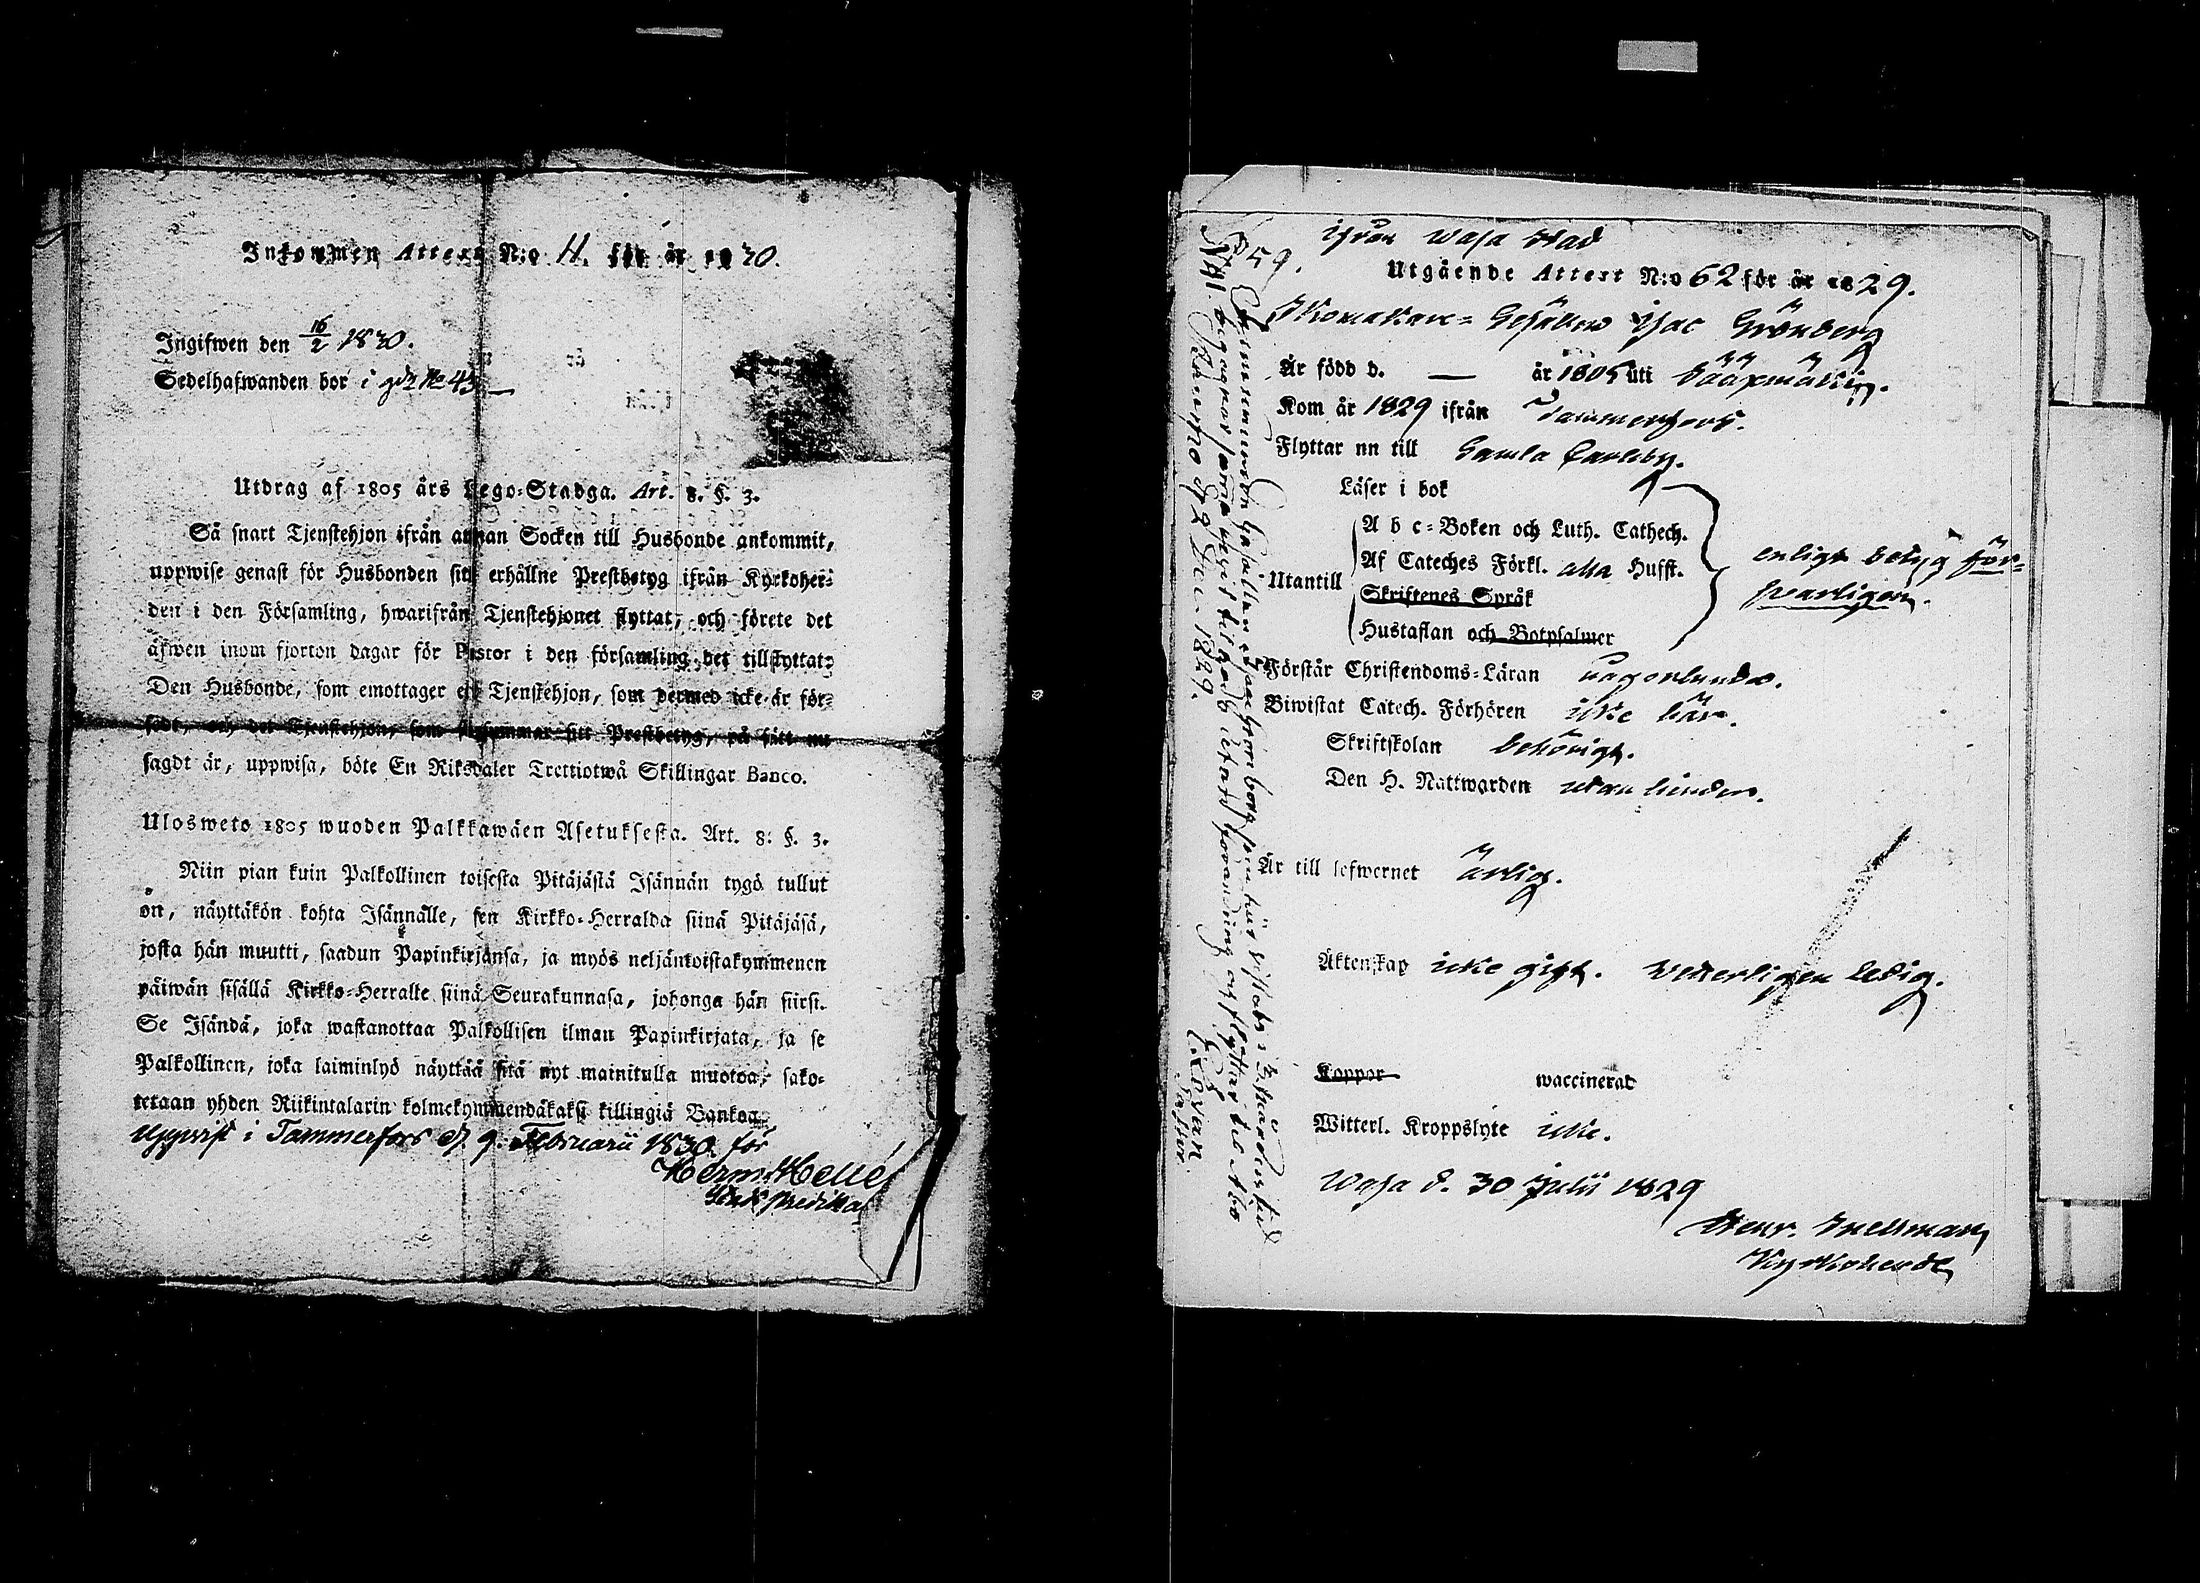 Inkommen Attest N:o 11. för år 1830.
Ingifwen den 16/2 1830.
Sedelhafwanden bor i gdn No 43
Utdrag af 1805 års Lego-Stadga. Art. 8. §. 3.
Så snart Tjenstehjon ifrån annan Socken till Husbonde ankommit,
uppwise genast för Husbonden sitt erhållne Prestbetyg ifrån Kyrkoher-
den i den Församling, hwarifrån Tjenstehjonet flyttat, och förete det
äfwen inom fjorton dagar för Pastor i den församling det tillflyttat:
Den Husbonde, som emottager ett Tjenstehjon, som dermed icke är för-
sedt, och det Tjenstehjon, som försummar sitt Prestbetyg, på sätt nu
sagdt är, uppwisa, böte En Riksdaler Trettiotwå Skillingar Banco.
Ulosweto 1805 wuoden Palkkawäen Asetuksesta. Art. 8: §. 3.
Niin pian kuin Palkollinen toisesta Pitäjästä Isännän tygö tullut
on, näyttäkön kohta Isännälle, sen Kirkko-Herralda siinä Pitäjäsä,
josta hän muutti, saadun Papinkirjansa, ja myös neljäntoistakymmenen
päiwän sisällä Kirkko-Herralle siinä Seurakunnasa, johonga hän siirsi.
Se Isändä, joka wastanottaa Palkollisen ilman Papinkirjata, ja se
Palkollinen, joka laiminlyö näyttää sitä nyt mainitulla muotoa, sako-
tetaan yhden Riikintalarin kolmekymmendäkaksi killingiä Bankoa.
Uppvist i Tammerfors d. 9. Februarii 1830. för
Herm. Hellé
ifrån Wasa Stad
Utgående Attest N:o 62 för år 1829.
Skomakare-Gesällen Isac Grönberg
Är född d. — år 1805 uti Sääxmäki.
Kom år 1829 ifrån Tammerfors.
Flyttar nu till Gamla Carleby.
Läser i bok
Abc-Boken och Luth. Cathech.
Af Cateches Förkl. alla Husst.
Utantill
Skriftenes Språk
Hustaflan och Botpsalmer
enligt betyg för-
svarligen.
Förstår Christendoms-Läran någorlunda.
Biwistat Catech. Förhören icke här.
Skriftskolan behörigt.
Den H. Nattwarden utan hinder.
Är till lefwernet ärlig.
Äktenskap icke gift. Vetterligen ledig.
Koppor waccinerad
Witterl. Kroppslyte icke.
Wasa d. 30 Julii 1829
Henr. Snellman
Kyrkoherde
59.